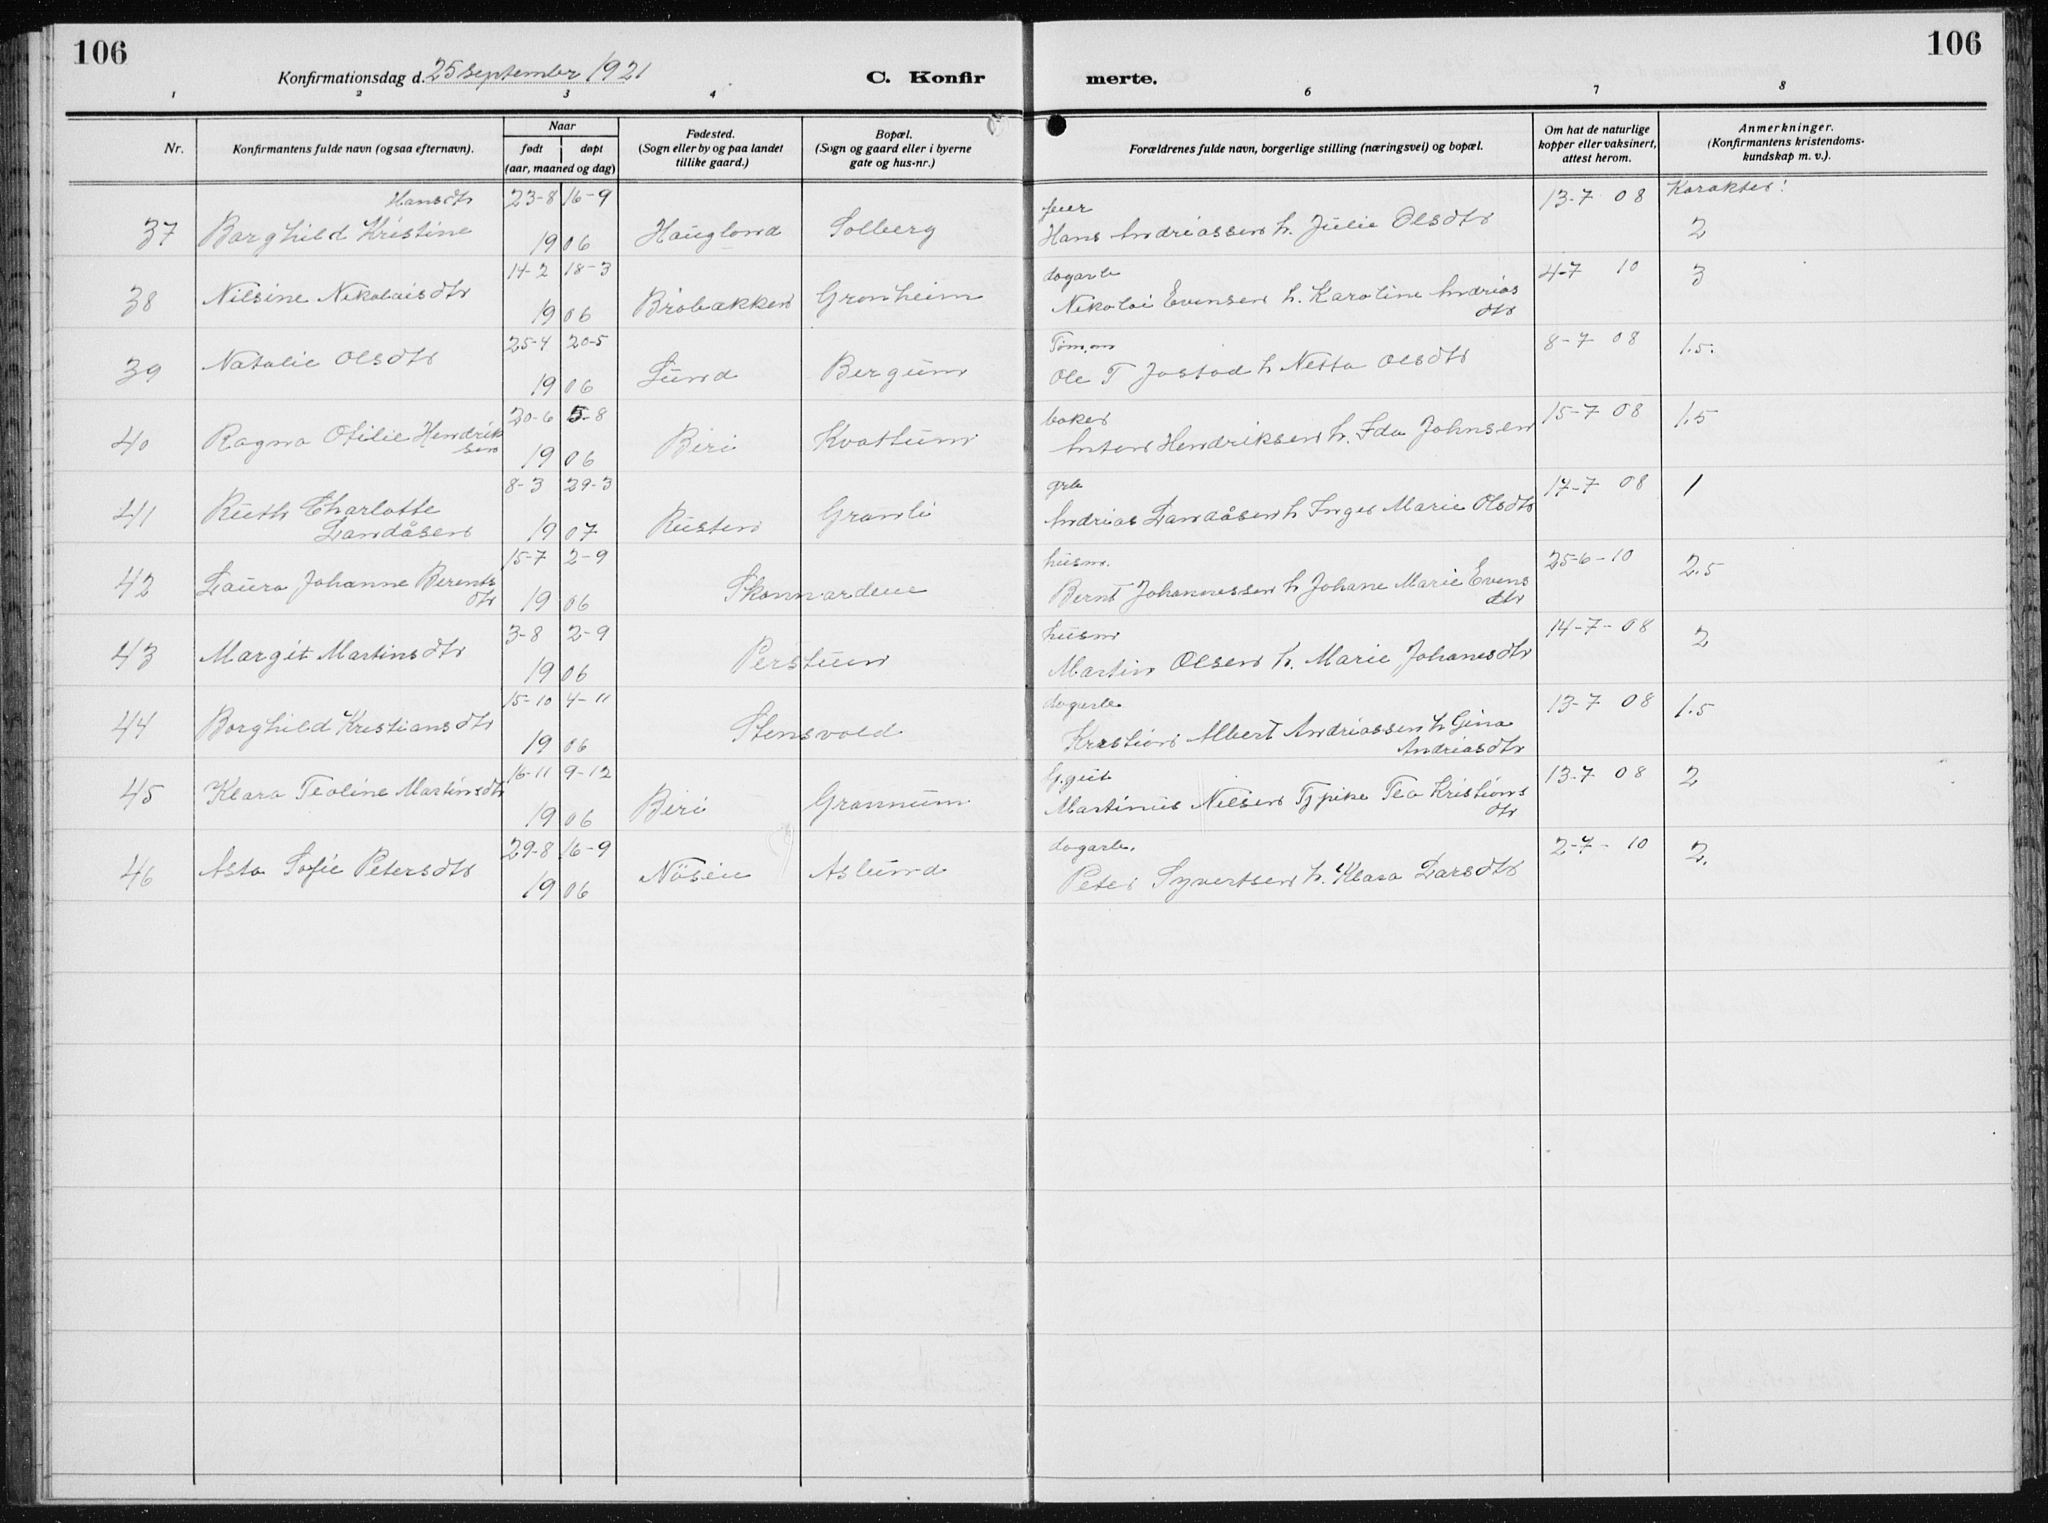 106
106
Konfirmationsdag d. 25 september 1921
C. Konfir
merte.
1 2 3 4 6 7 8
Nr.
Konfirmantens fulde navn (ogsaa efternavn).
Naar
født døpt
(aar, maaned og dag)
Fødested.
(Sogn eller by og paa landet
tillike gaard.)
Bopæl.
(Sogn og gaard eller i byerne
gate og hus-nr.)
Forældrenes fulde navn, borgerlige stilling (næringsvei) og bopæl.
Om hat de naturlige
kopper eller vaksinert,
attest herom.
Anmerkninger.
(Konfirmantens kristendoms-
kundskap m. v.).
Hansdtr 23-8 16-9 13-7 08 Karakter:
37 Borghild Kristine 19 06 Hauglund Solberg Hans Andreassen h. Julie Olsdtr 2
14-2 18-3 dagarb 4-7 10
38 Nilsine Nikolaisdtr 19 06 Brobakken Grønheim Nikolai Evensen h. Karoline Andreas 3
dtr
25-4 20-5 8-7 08
39 Natalie Olsdtr 19 06 Lund Bergum Ole T Jostad h Netta Olsdtr 1.5.
20-6 5-8 baker 15-7 08
40 Ragna Otilie Hendrik 19 06 Biri Kvattum Anton Hendriksen h. Ida Johnsen 1.5
sen
8-3 29-3 grb 17-7 08
41 Ruth Charlotte 19 07 Rusten Granli Andreas Landåsen h Inger Marie Olsdtr 1
Landåsen
15-7 2-9 husm. 25-6-10
42 Laura Johanne Berents 19 06 Skonnarden Bernt Johannessen h Johane Marie Evens 2.5
dtr dtr
3-8 2-9 husm 14-7-08
43 Margit Martinsdtr 19 06 Perstuen Martin Olsen h. Marie Johanesdtr 2
15-10 4-11 dagarb 13-7 08
44 Borghild Kristiansdtr 19 06 Stensvold Kristian Albert Andreassen h Gina 1.5
Andreasdtr
16-11 9-12 G.gut 13-7 08
45 Klara Teoline Martinsdtr 19 06 Biri Grannum Martinus Nilsen Tj pike Tea Kristians 2
dtr
29-8 16-9 dagarb. 2-7-10
46 Asta Sofie Petersdtr 19 06 Nøsen Aslund Peter Syvertsen h. Klara Larsdtr 2.